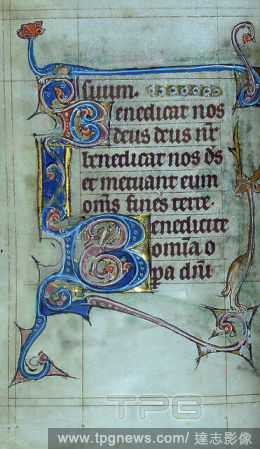 suum.
Benedicat nos
deus deus nr
benedicat nos ds
et metuant eum
omis fines terre.
Benedicite
omia o
pa dni
TPG
www.tpgnews.com/ 達志影像